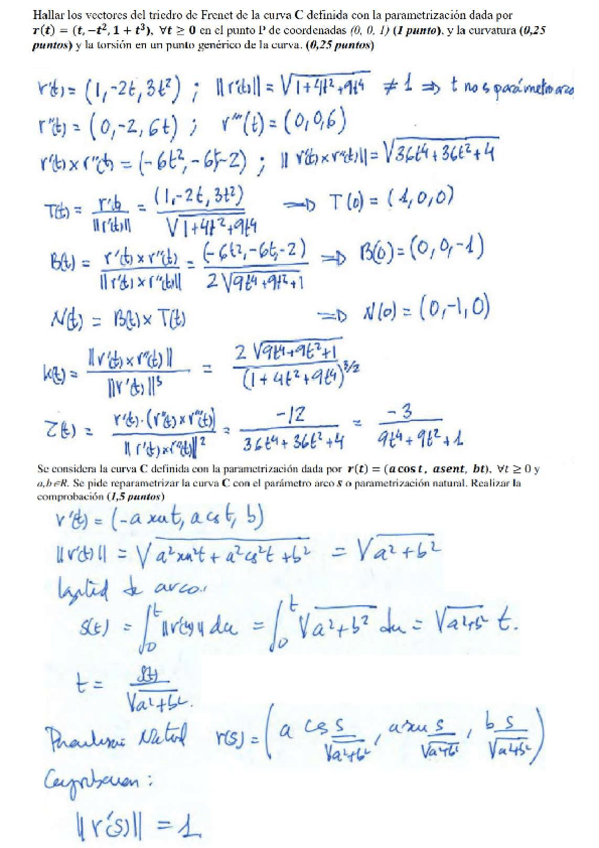 Hallar los vectores del triedro de Frenet de la curva C definida con la parametrización dada por
r(t) = (t, −t², 1 + t³), ∀t ≥ 0 en el punto P de coordenadas (0, 0, 1) (1 punto), y la curvatura (0,25
puntos) y la torsión en un punto genérico de la curva. (0,25 puntos)
r'(t) = (1, -2t, 3t²) ; ||r'(t)|| = √(1+4t²+9t⁴) ≠ 1 ⇒ t no es parámetro arco
r''(t) = (0, -2, 6t) ; r'''(t) = (0,0,6)
r'(t) x r''(t) = (-6t², -6t, -2) ; || r'(t) x r''(t)|| = √(36t⁴+36t²+4)
T(t) = r'(t) / ||r'(t)|| = (1, -2t, 3t²) / √(1+4t²+9t⁴) ⇒ T(0) = (1,0,0)
B(t) = r'(t) x r''(t) / ||r'(t) x r''(t)|| = (-6t², -6t, -2) / 2√(9t⁴+9t²+1) ⇒ B(0) = (0, 0, -1)
N(t) = B(t) x T(t) ⇒ N(0) = (0, -1, 0)
k(t) = ||r'(t) x r''(t)|| / ||r'(t)||³ = 2√(9t⁴+9t²+1) / (1+4t²+9t⁴)^3/2
τ(t) = r'(t)·(r''(t) x r'''(t)) / ||r'(t) x r''(t)||² = -12 / 36t⁴+36t²+4 = -3 / 9t⁴+9t²+1
Se considera la curva C definida con la parametrización dada por r(t) = (a cos t, asent, bt), ∀t ≥ 0 y
a,b∈R. Se pide reparametrizar la curva C con el parámetro arco s o parametrización natural. Realizar la
comprobación (1,5 puntos)
r'(t) = (-a sen t, a cos t, b)
||r'(t)|| = √(a² sen² t + a² cos² t + b²) = √(a²+b²)
Longitud de arco:
s(t) = ∫₀ᵗ ||r'(u)|| du = ∫₀ᵗ √(a²+b²) du = √(a²+b²) t.
t = s(t) / √(a²+b²).
Natural r(s) = (a cos s/√(a²+b²), a sen s/√(a²+b²), b s/√(a²+b²))
Comprobacion :
||r'(s)|| = 1